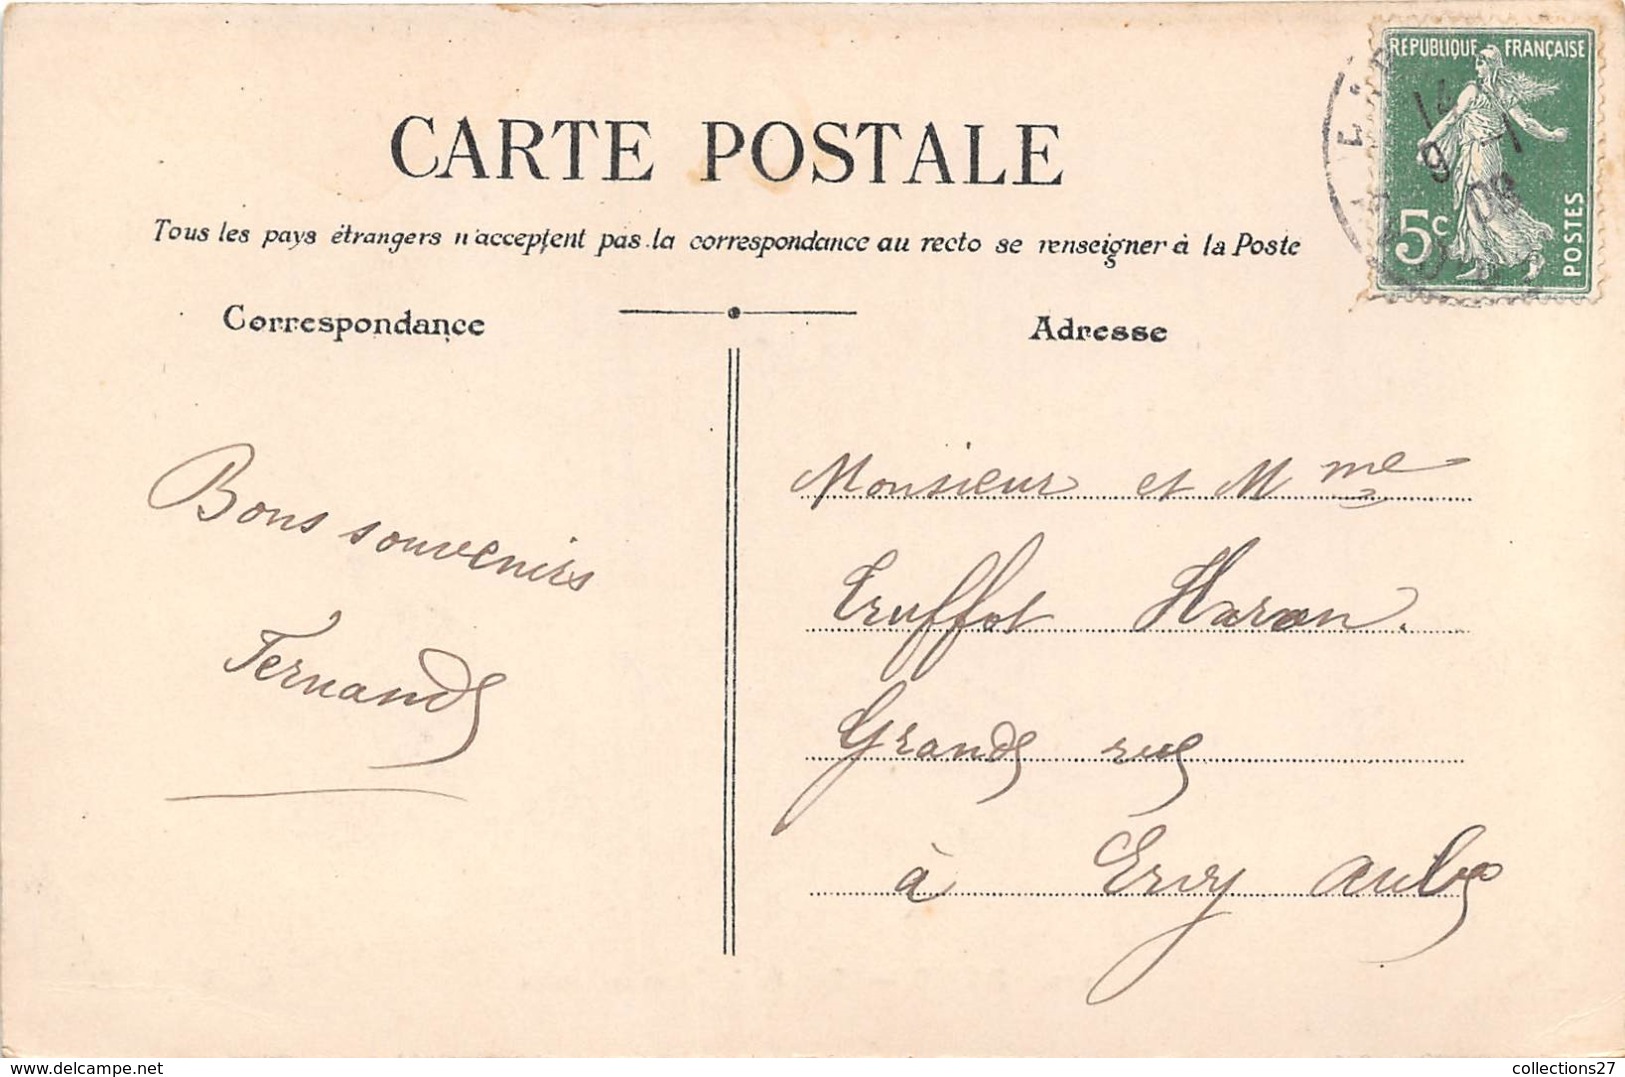 RÉPUBLIQUE FRANÇAISE
12
9 - 1
08
5c
POSTES
CARTE POSTALE
Tous les pays étrangers n'acceptent pas la correspondance au recto se renseigner à la Poste
Correspondance
Adresse
Bons souvenirs
Fernand
Monsieur et Mme
Truffot Haron.
Grande rue
à Ervy Aube
collections27